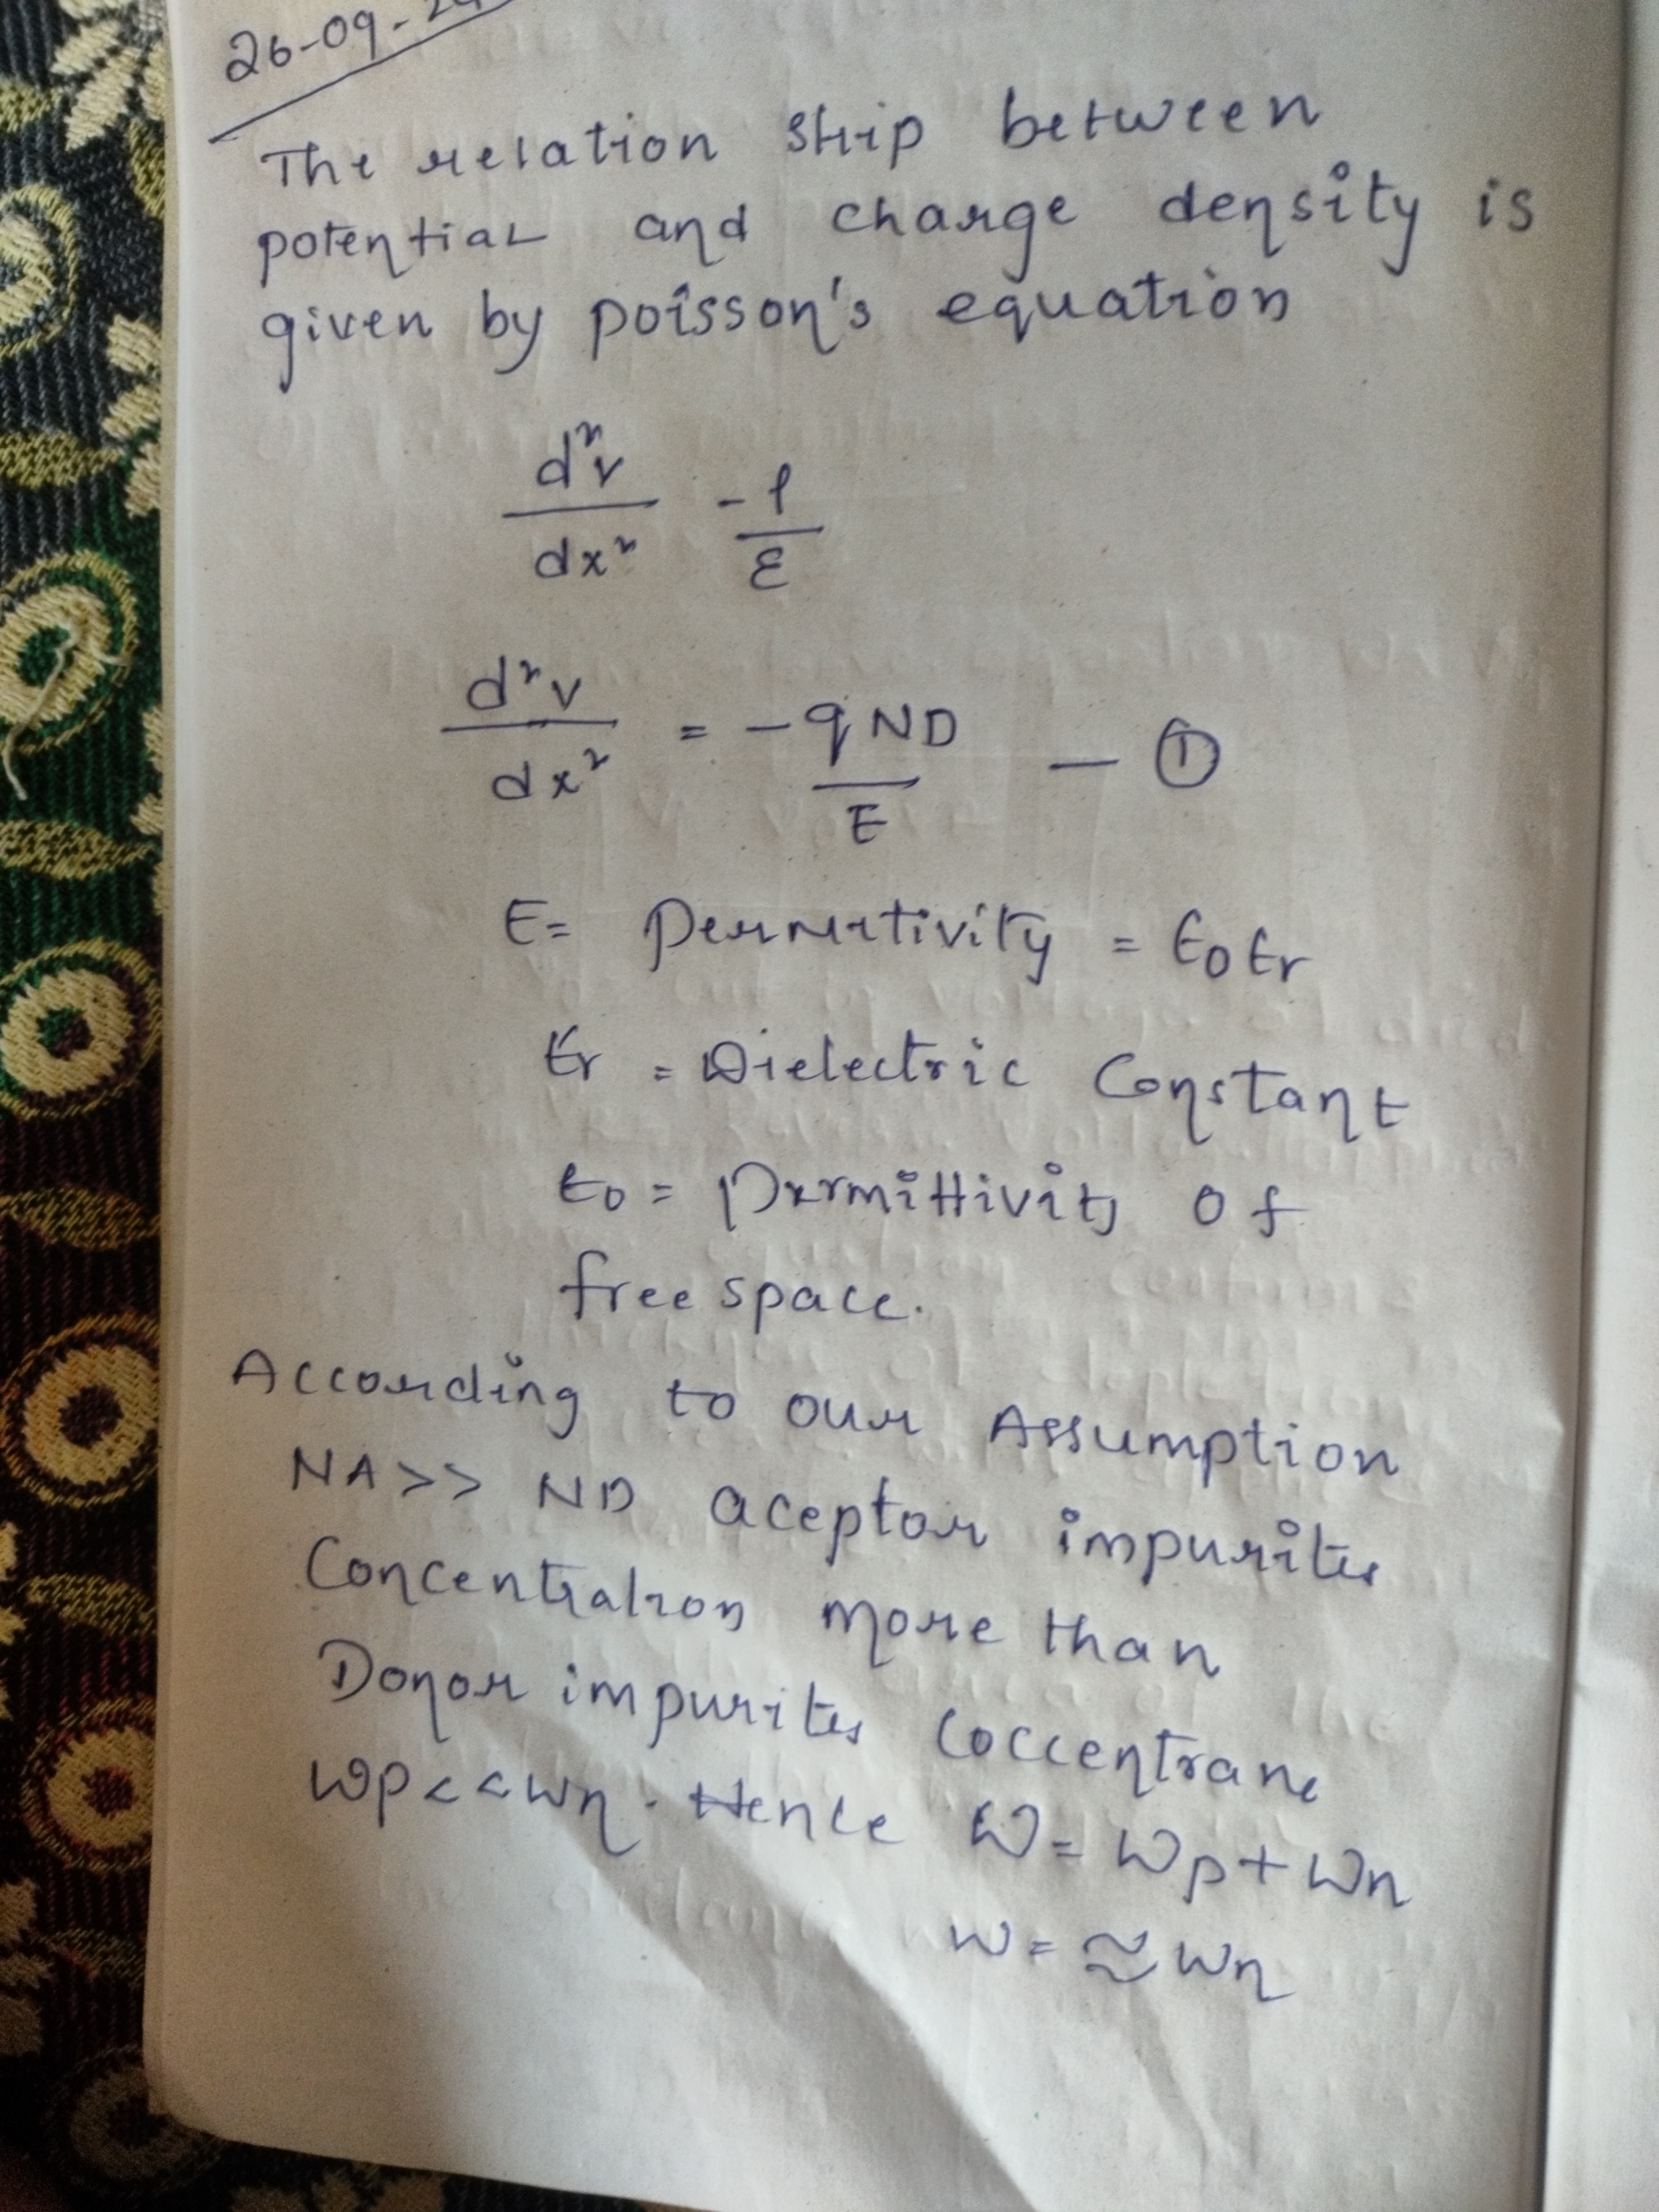 26-09-
The relation ship between
potential and charge density is
given by poisson's equation
d²v/dx² -ρ/ε
d²v/dx² = -qND/E — ①
E= permetivity = ϵ0 ϵr
ϵr = Dielectric Constant
ϵ0 = permittivity of
free space.
According to our Assumption
NA>> ND aceptor impurites
Concentration more than
Donor impurites coccentrane
wp<<wn. Hence W= Wp+Wn
W= ≈ Wn